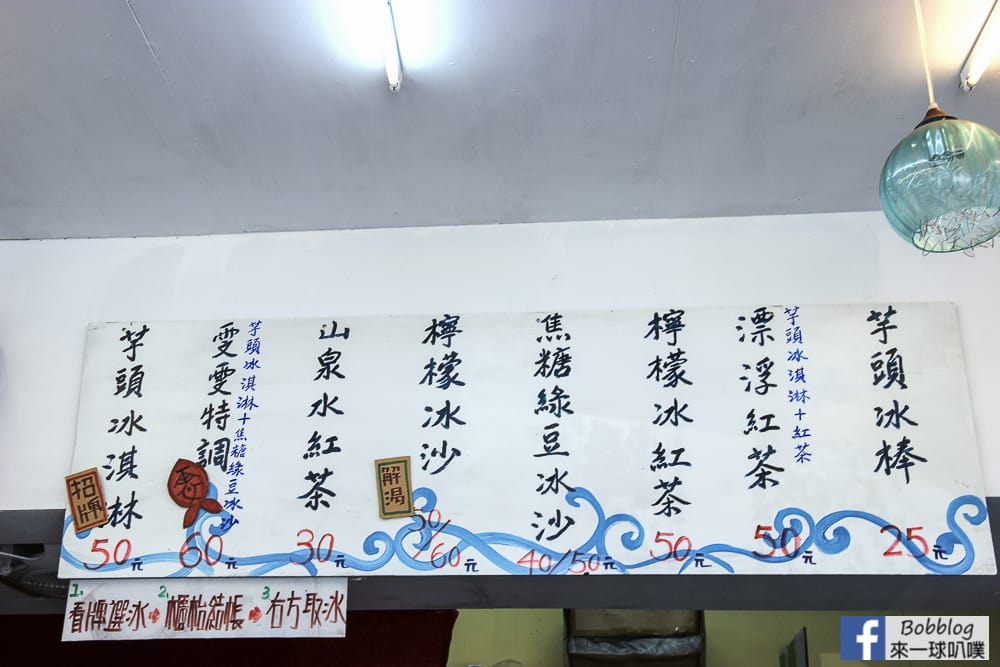 芋頭冰棒
25元
漂浮紅茶
芋頭冰淇淋+紅茶
50元
檸檬冰紅茶
50元
焦糖綠豆冰沙
40/50元
檸檬冰沙
解渴
50/60元
山泉水紅茶
30元
雯雯特調
芋頭冰淇淋+焦糖綠豆冰沙
60元
芋頭冰淇淋
招牌
50元
1.看牌選冰 2.櫃枱結帳 3.右方取冰
f Bobblog
來一球叭噗